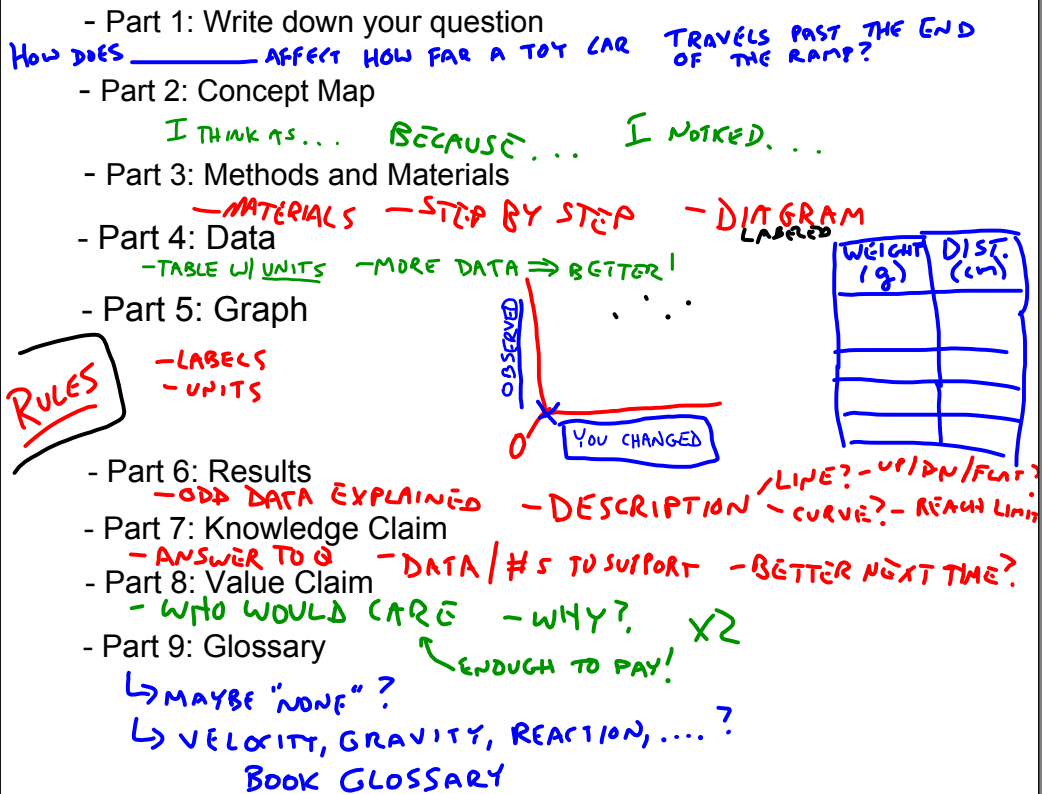 - Part 1: Write down your question
HOW DOES ______ AFFECT HOW FAR A TOY CAR TRAVELS PAST THE END OF THE RAMP?
- Part 2: Concept Map
I THINK AS... BECAUSE... I NOTICED...
- Part 3: Methods and Materials
- MATERIALS - STEP BY STEP - DIAGRAM
LABELED
- Part 4: Data
- TABLE W/ UNITS - MORE DATA ⇒ BETTER!
WEIGHT (g) DIST. (cm)
- Part 5: Graph
- LABELS
- UNITS
RULES
OBSERVED
0
YOU CHANGED
- Part 6: Results
- ODD DATA EXPLAINED - DESCRIPTION LINE? - UP/DN/FLAT?
- CURVE? - REACH LIMIT
- Part 7: Knowledge Claim
- ANSWER TO Q - DATA/#S TO SUPPORT - BETTER NEXT TIME?
- Part 8: Value Claim
- WHO WOULD CARE - WHY? X2
ENOUGH TO PAY!
- Part 9: Glossary
↳ MAYBE "NONE"?
↳ VELOCITY, GRAVITY, REACTION, ....?
BOOK GLOSSARY